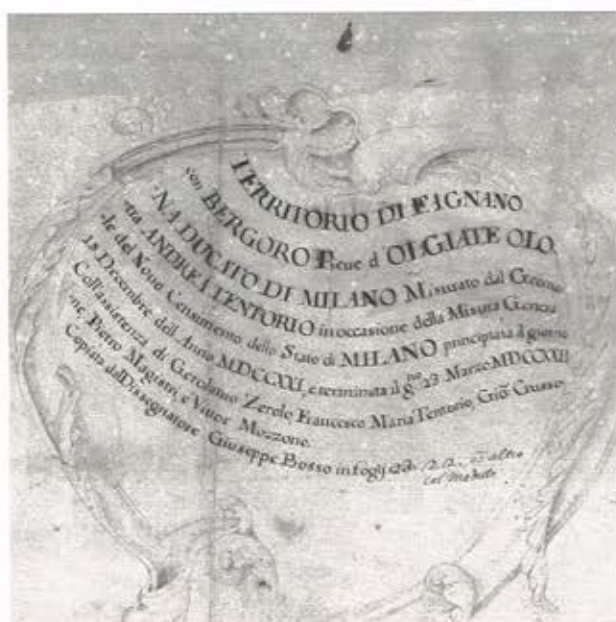 TERRITORIO DI FAGNANO
con BERGORO Pieue d' OLGIATE OLO
NA DUCATO DI MILANO Misurato dal Geome
tra ANDREA TENTORIO in occasione della Misura Genera
le del Nouo Censimento dello Stato di MILANO principiata il giorno
18 Decembre dell'Anno MDCCXXI, e terminata il g.no 23 Marzo MDCCXXII
Coll'assistenza di Gerolamo Zerolo, Francesco Maria Tentorio, Gio
ne, Pietro Magiatti, e Vittor Mozzone.
Copiata dal Dissegnatore Giuseppe Bosso in fogli